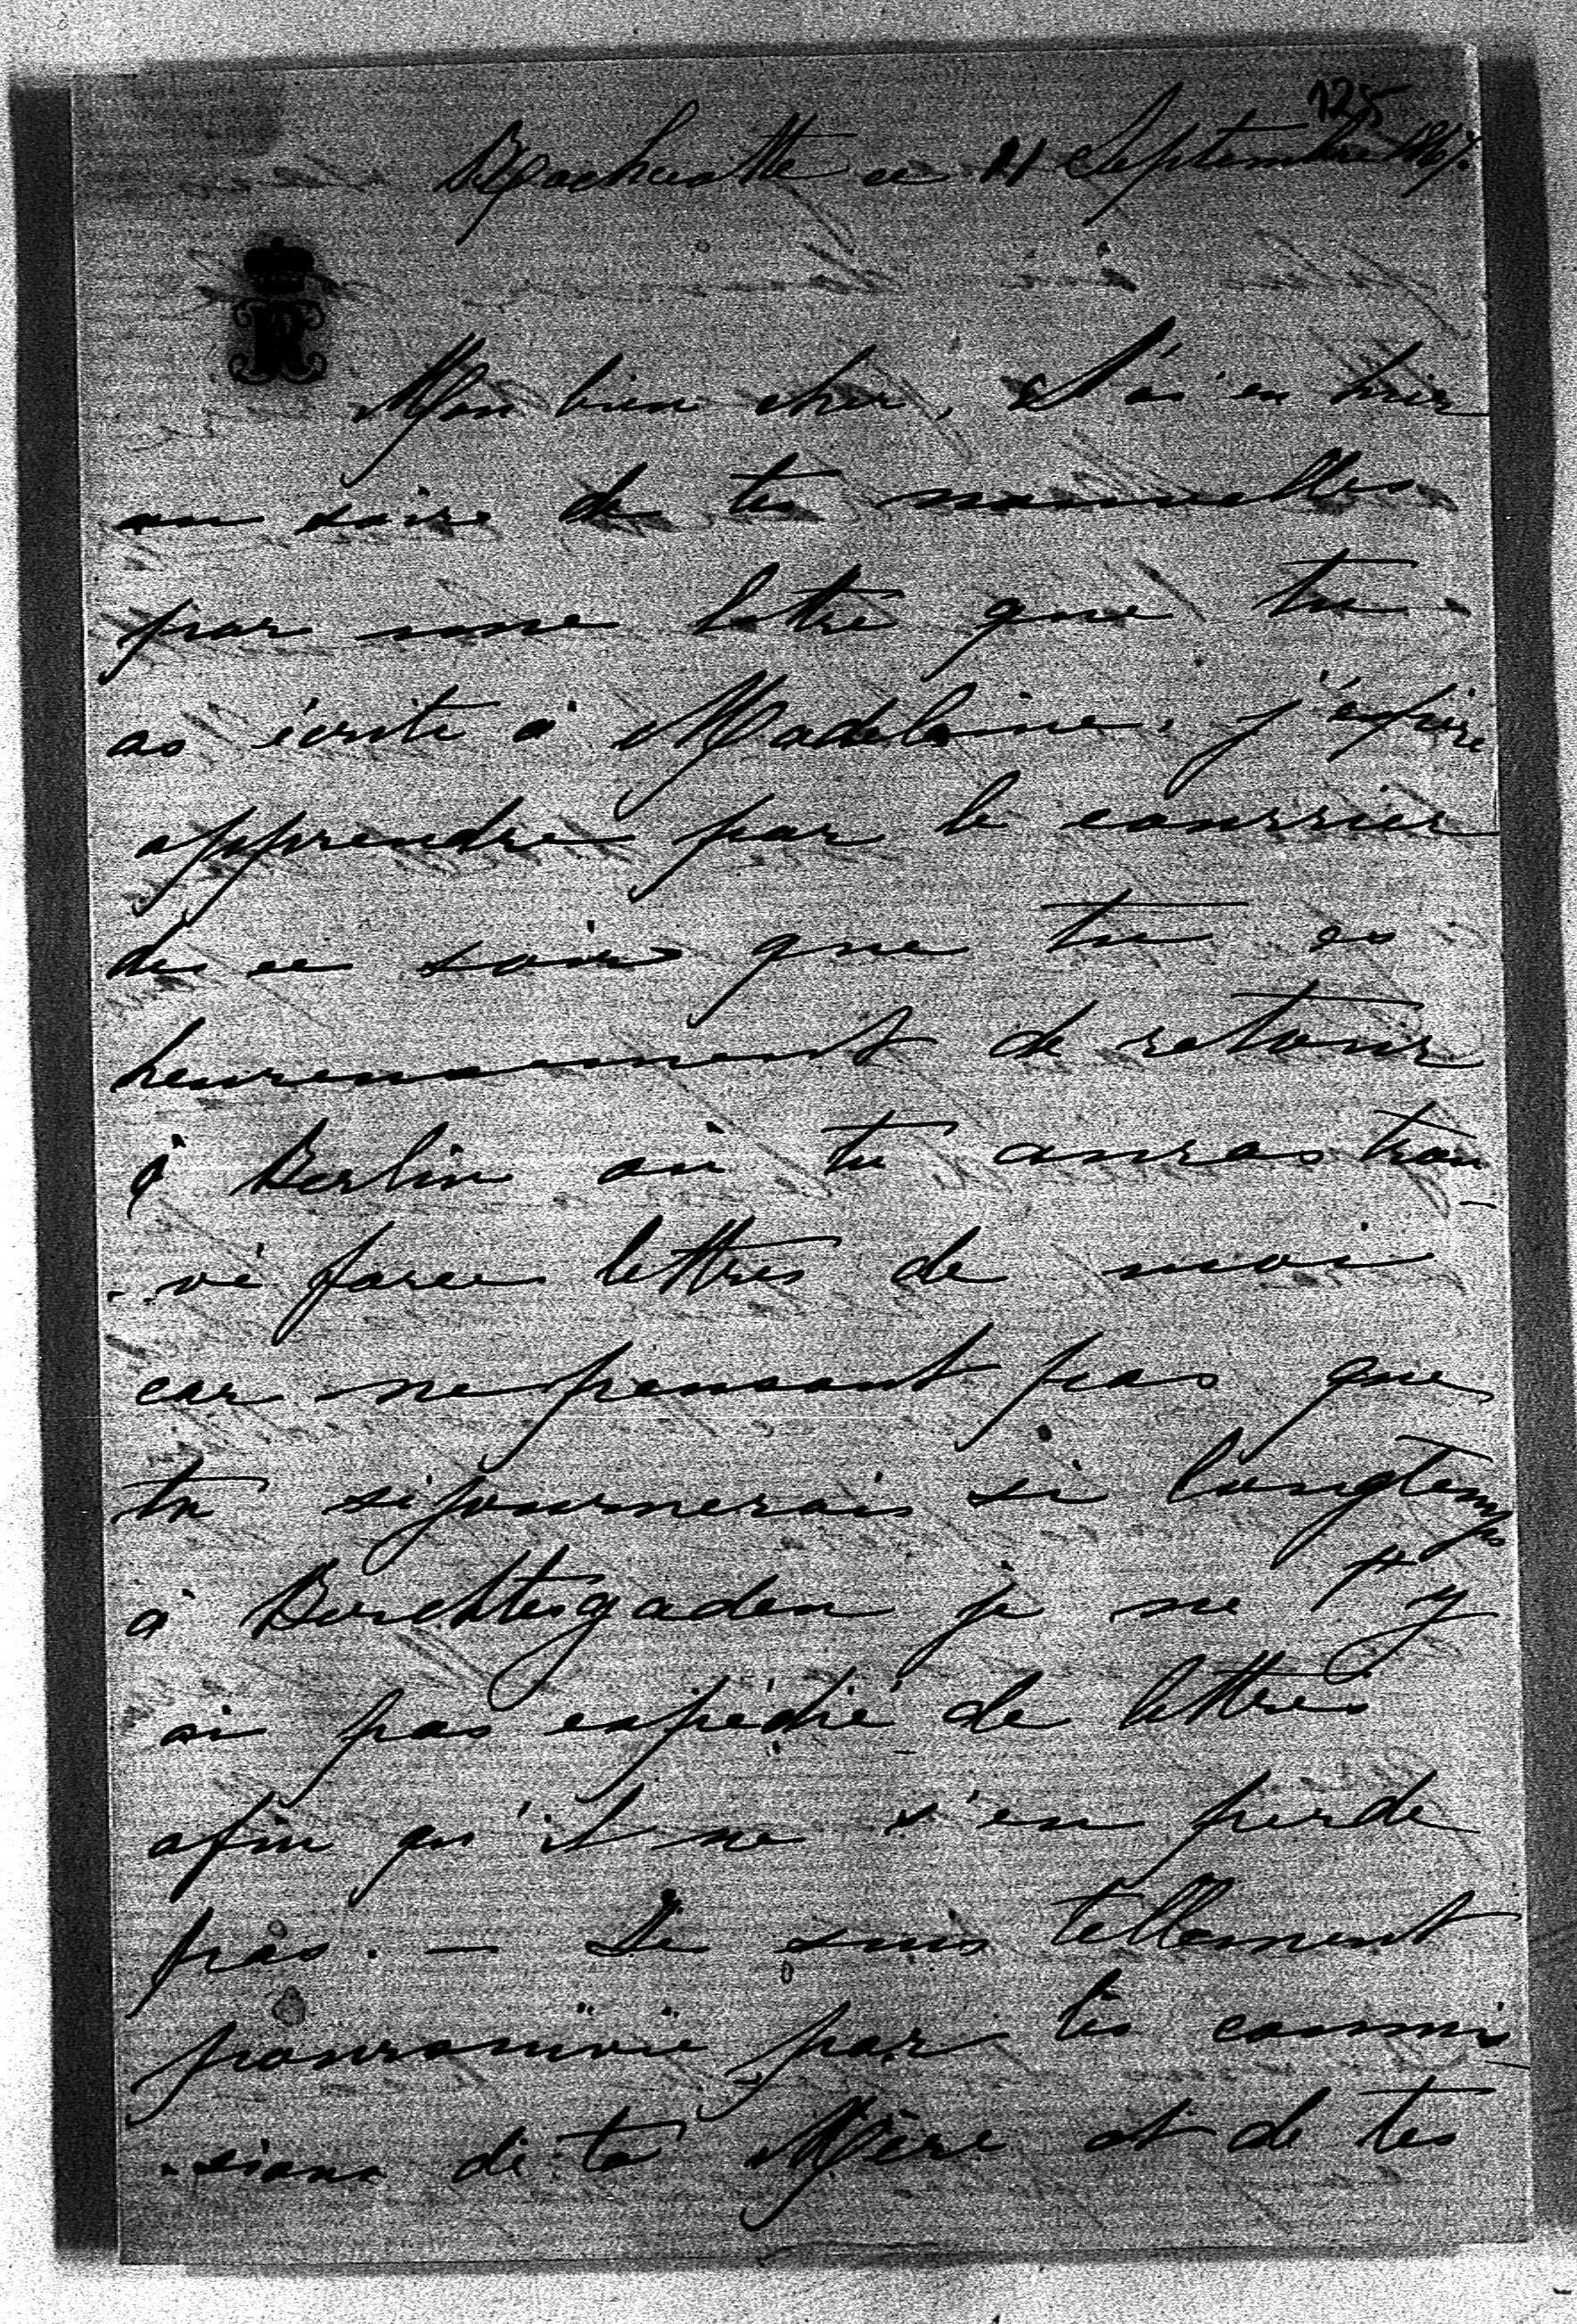 125
ce 21 Septembre 186
R
Mon bien cher, J'ai eu hier
au soire de tes nouvelles
par une lettre que tu
as écrite à Madeleine, j'éspère
apprendre par le courrier
de ce soire que tu es
heureusement de retour
à Berlin où tu auras trou-
-vé force lettres de moi
car ne pensant pas que
tu séjournerais si longtemps
à Berchtesgaden je ne t'y
ai pas expédié de lettres
afin qu'il ne s'en perde
pas. — Je suis tellement
poursuivie par les commi-
-sions de ta Mère et de tes